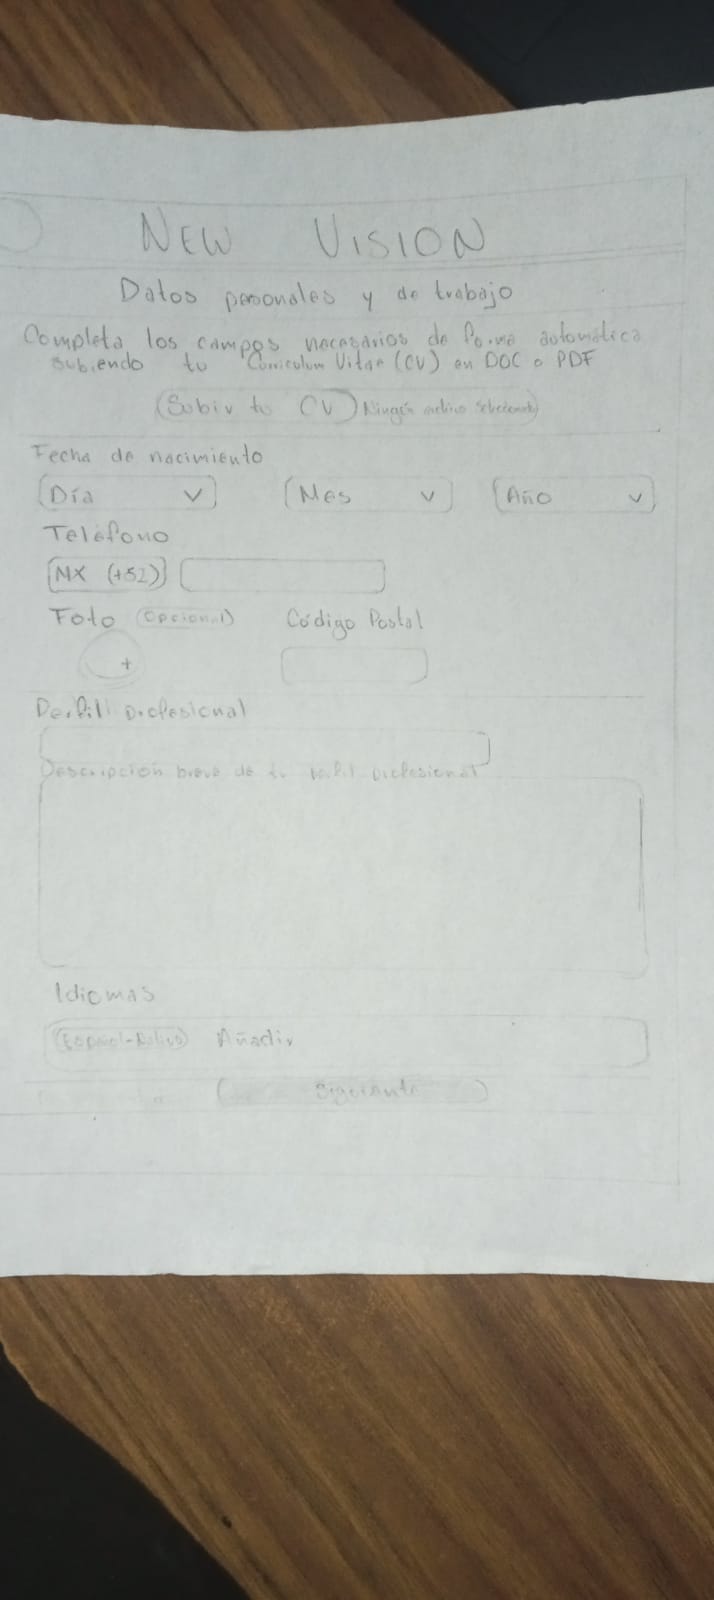 NEW VISION
Datos personales y de trabajo
Completa los campos necesarios de forma automática
subiendo tu Curriculum Vitae (CV) en DOC o PDF
Subir tu CV Ningún archivo seleccionado
Fecha de nacimiento
Día Mes Año
Teléfono
MX (+52)
Foto (Opcional) Código Postal
+
Perfil profesional
Descripción breve de tu perfil profesional
Idiomas
Español-Nativo Añadir
Siguiente